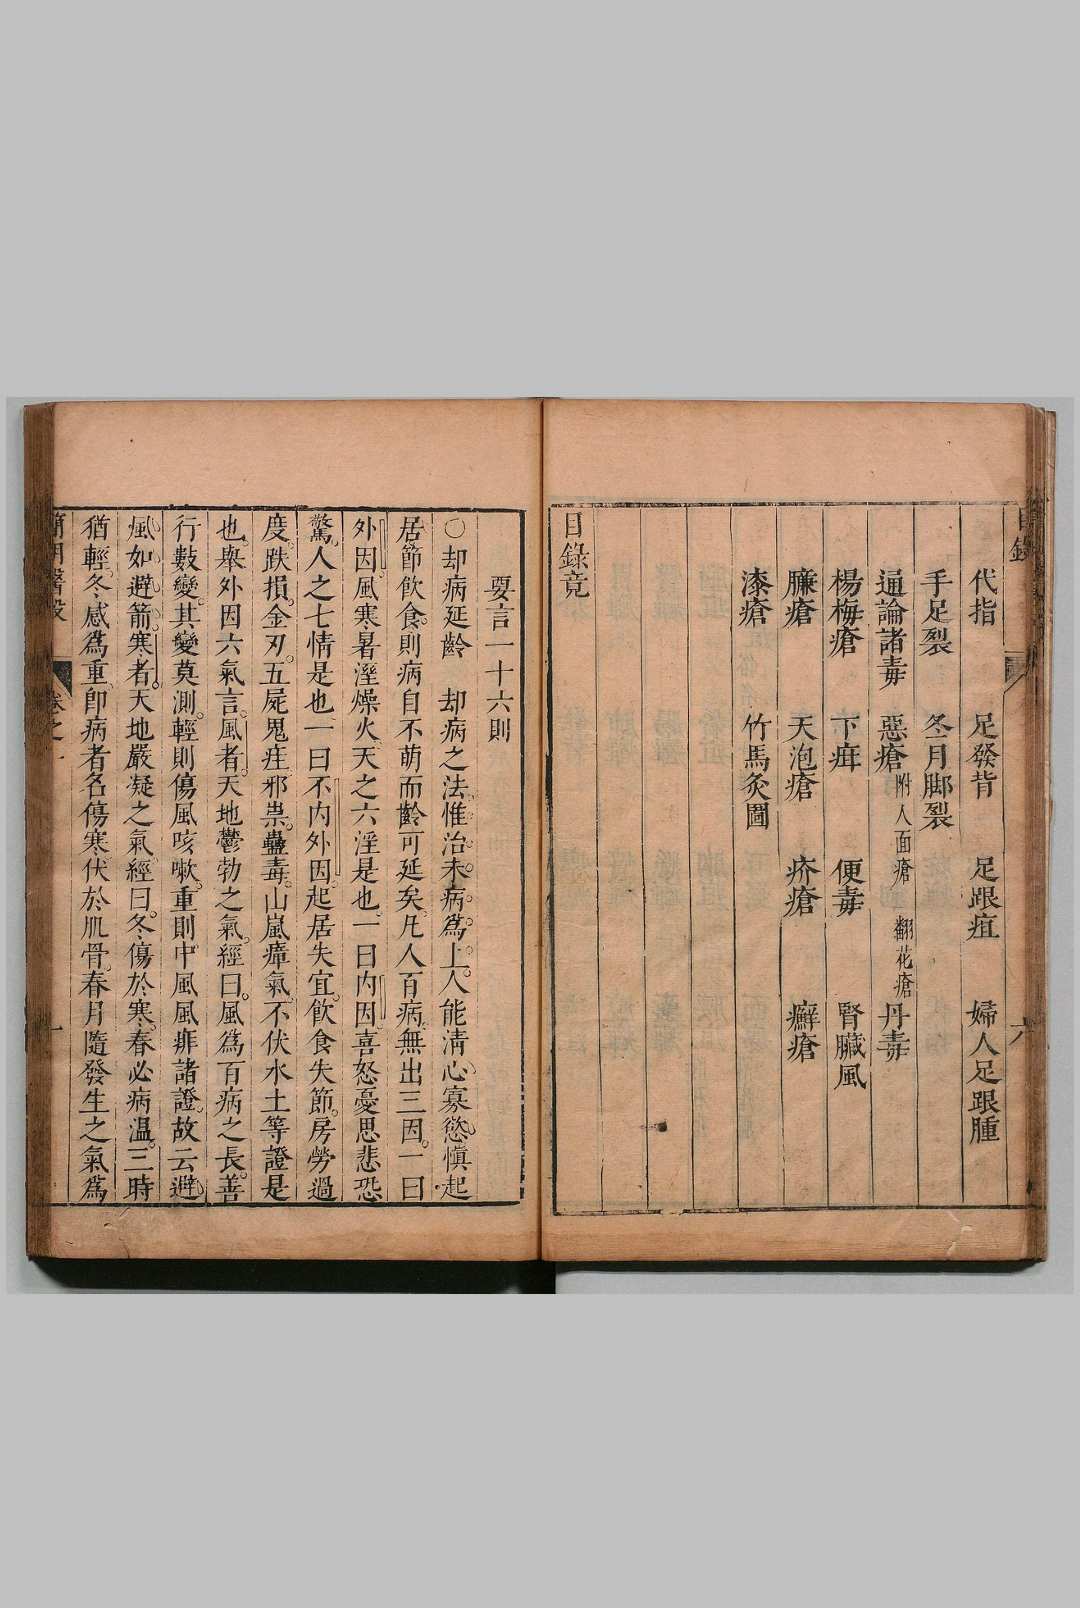 目錄
六
代指　足發背　足跟疽　婦人足跟腫
手足裂　冬月脚裂
通論諸毒　惡瘡附人面瘡　翻花瘡　丹毒
楊梅瘡　下疳　便毒　腎臟風
臁瘡　天泡瘡　疥瘡　癬瘡
漆瘡　竹馬灸圖
目錄竟
要言一十六則
○却病延齡　却病之法惟治未病爲上人能清心寡慾愼起
居節飲食則病自不萌而齡可延矣凡人百病無出三因一曰
外因風寒暑溼燥火天之六淫是也一曰內因喜怒憂思悲恐
驚人之七情是也一曰不內外因起居失宜飲食失節房勞過
度跌損金刃五屍鬼疰邪祟蠱毒山嵐瘴氣不伏水土等證是
也舉外因六氣言風者天地鬱勃之氣經曰風爲百病之長善
行數變其變莫測輕則傷風咳嗽重則中風風痱諸證故云避
風如避箭寒者天地嚴凝之氣經曰冬傷於寒春必病温三時
猶輕冬感爲重卽病者名傷寒伏於肌骨春月隨發生之氣爲
簡明醫彀　卷之一　一